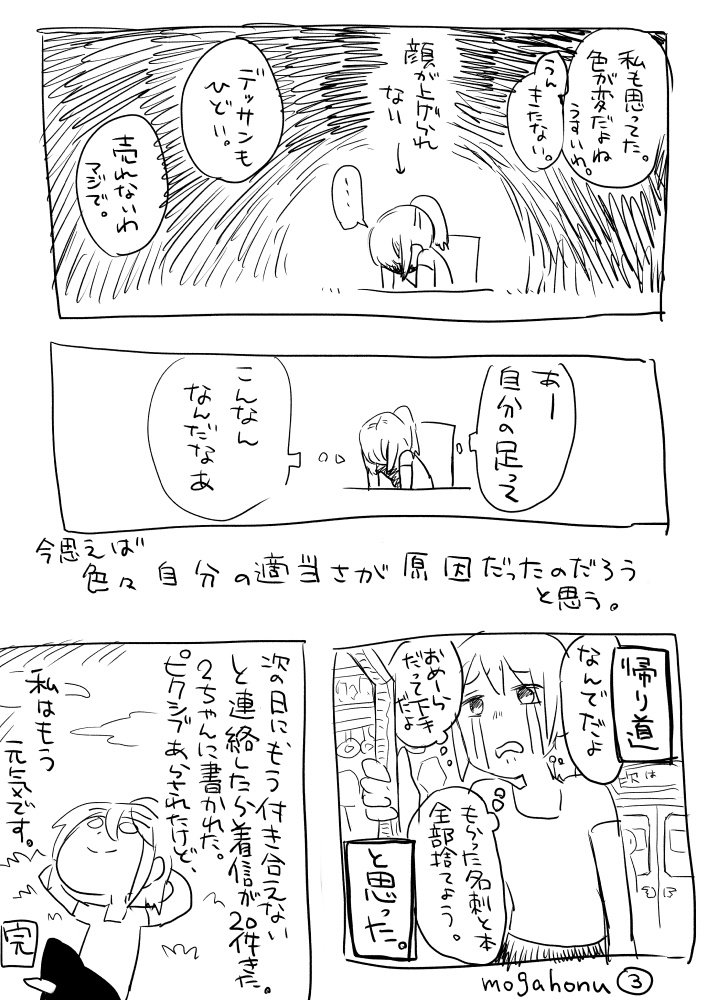 私も思ってた。
色が変だよね
うすいわ。
うん
きたない。
顔が上げられ
ない→
デッサンも
ひどい。
売れないわ
マジで。
…
あー
自分の足って
こんなん
なんだなあ
今思えば
色々自分の適当さが原因だったのだろう
と思う。
帰り道
なんでだよ
おめーら
だって下手
だよ
次は
もらった名刺と本
全部捨てよう。
と思った。
次の日にもう付き合えない
と連絡したら着信が20件きた。
2ちゃんに書かれた。
ピクシブあらされたけど、
私はもう
元気です。
完
mogahonu ③